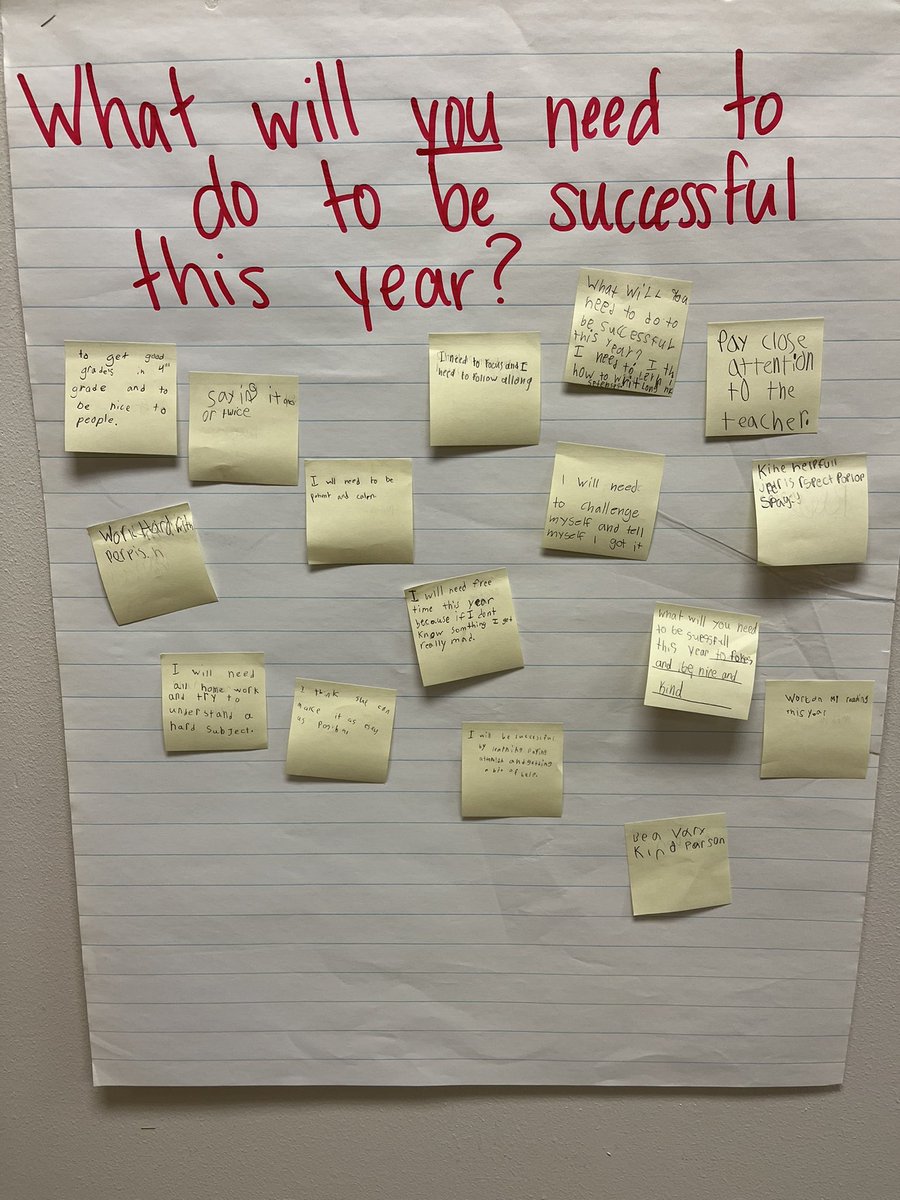 What will you need to
do to be successful
this year?
to get good
grades in 4th
grade and to
be nice to
people.
saying it once
or twice
I need to focus and I
need to follow allong
What will you
need to do to
be successful
this year?
I need to
how to
Pay close
attention
to the
teacher.
Work Hard with
I will need to be
patient and calm
I will need
to challenge
myself and tell
myself I got it
Kine helpfull
respect
I will need free
time this year
because if I dont
know somthing I get
really mad.
what will you need
to be suessfull
this year to
and be nice and
kind
I will need
all home work
and try to
understand a
hard subject.
I think she can
make it as easy
as
I will be successful
by learning paying
and getting
a bit of help.
Work on my reading
this year
Be a Vary
Kind Parson